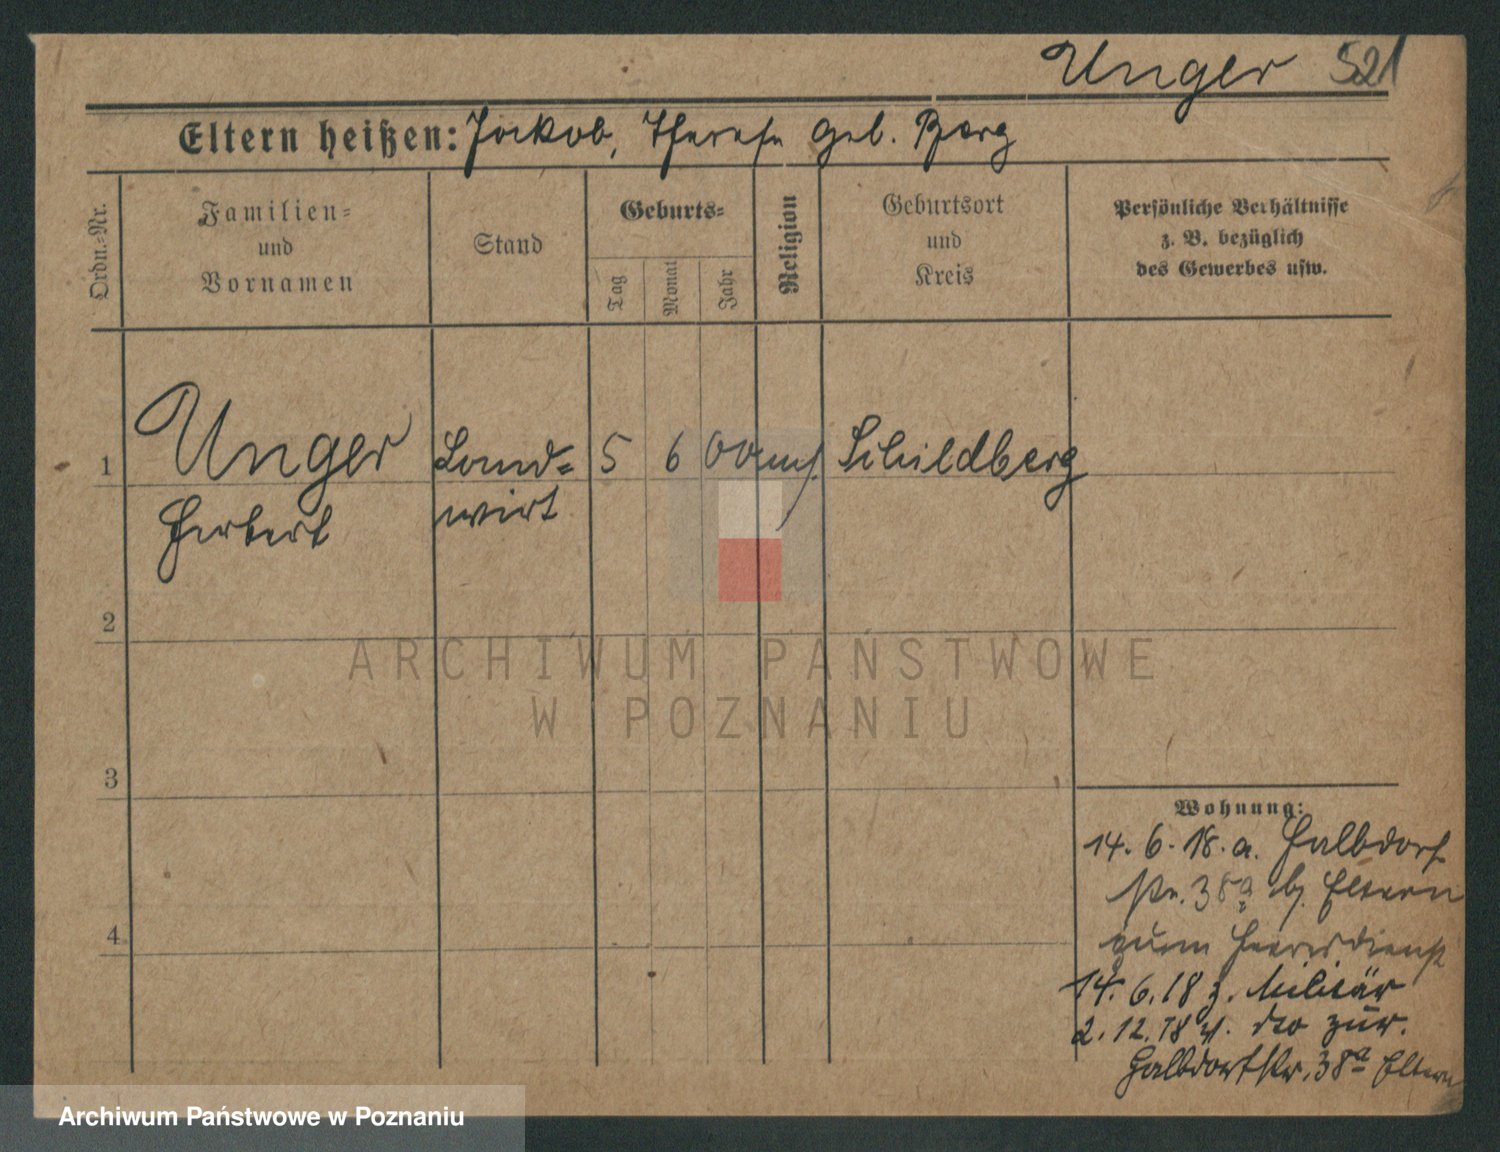 Unger 521
Eltern heißen: Jakob, Therese geb. Berg
Ordn.-Nr.
Familien-
und
Vornamen
Stand
Geburts-
Tag
Monat
Jahr
Religion
Geburtsort
und
Kreis
Persönliche Verhältnisse
z. B. bezüglich
des Gewerbes usw.
1 Unger Land- 5 6 00 mos. Schildberg
Herbert wirt
2
3
4
Wohnung:
14. 6. 18. a. Halbdorf
str. 38a b. Eltern
zum Heeresdienst
14. 6. 18 z. Militär
2. 12. 18 v. dto zur.
Halbdorfstr. 38a Eltern
ARCHIWUM PAŃSTWOWE
W POZNANIU
Archiwum Państwowe w Poznaniu